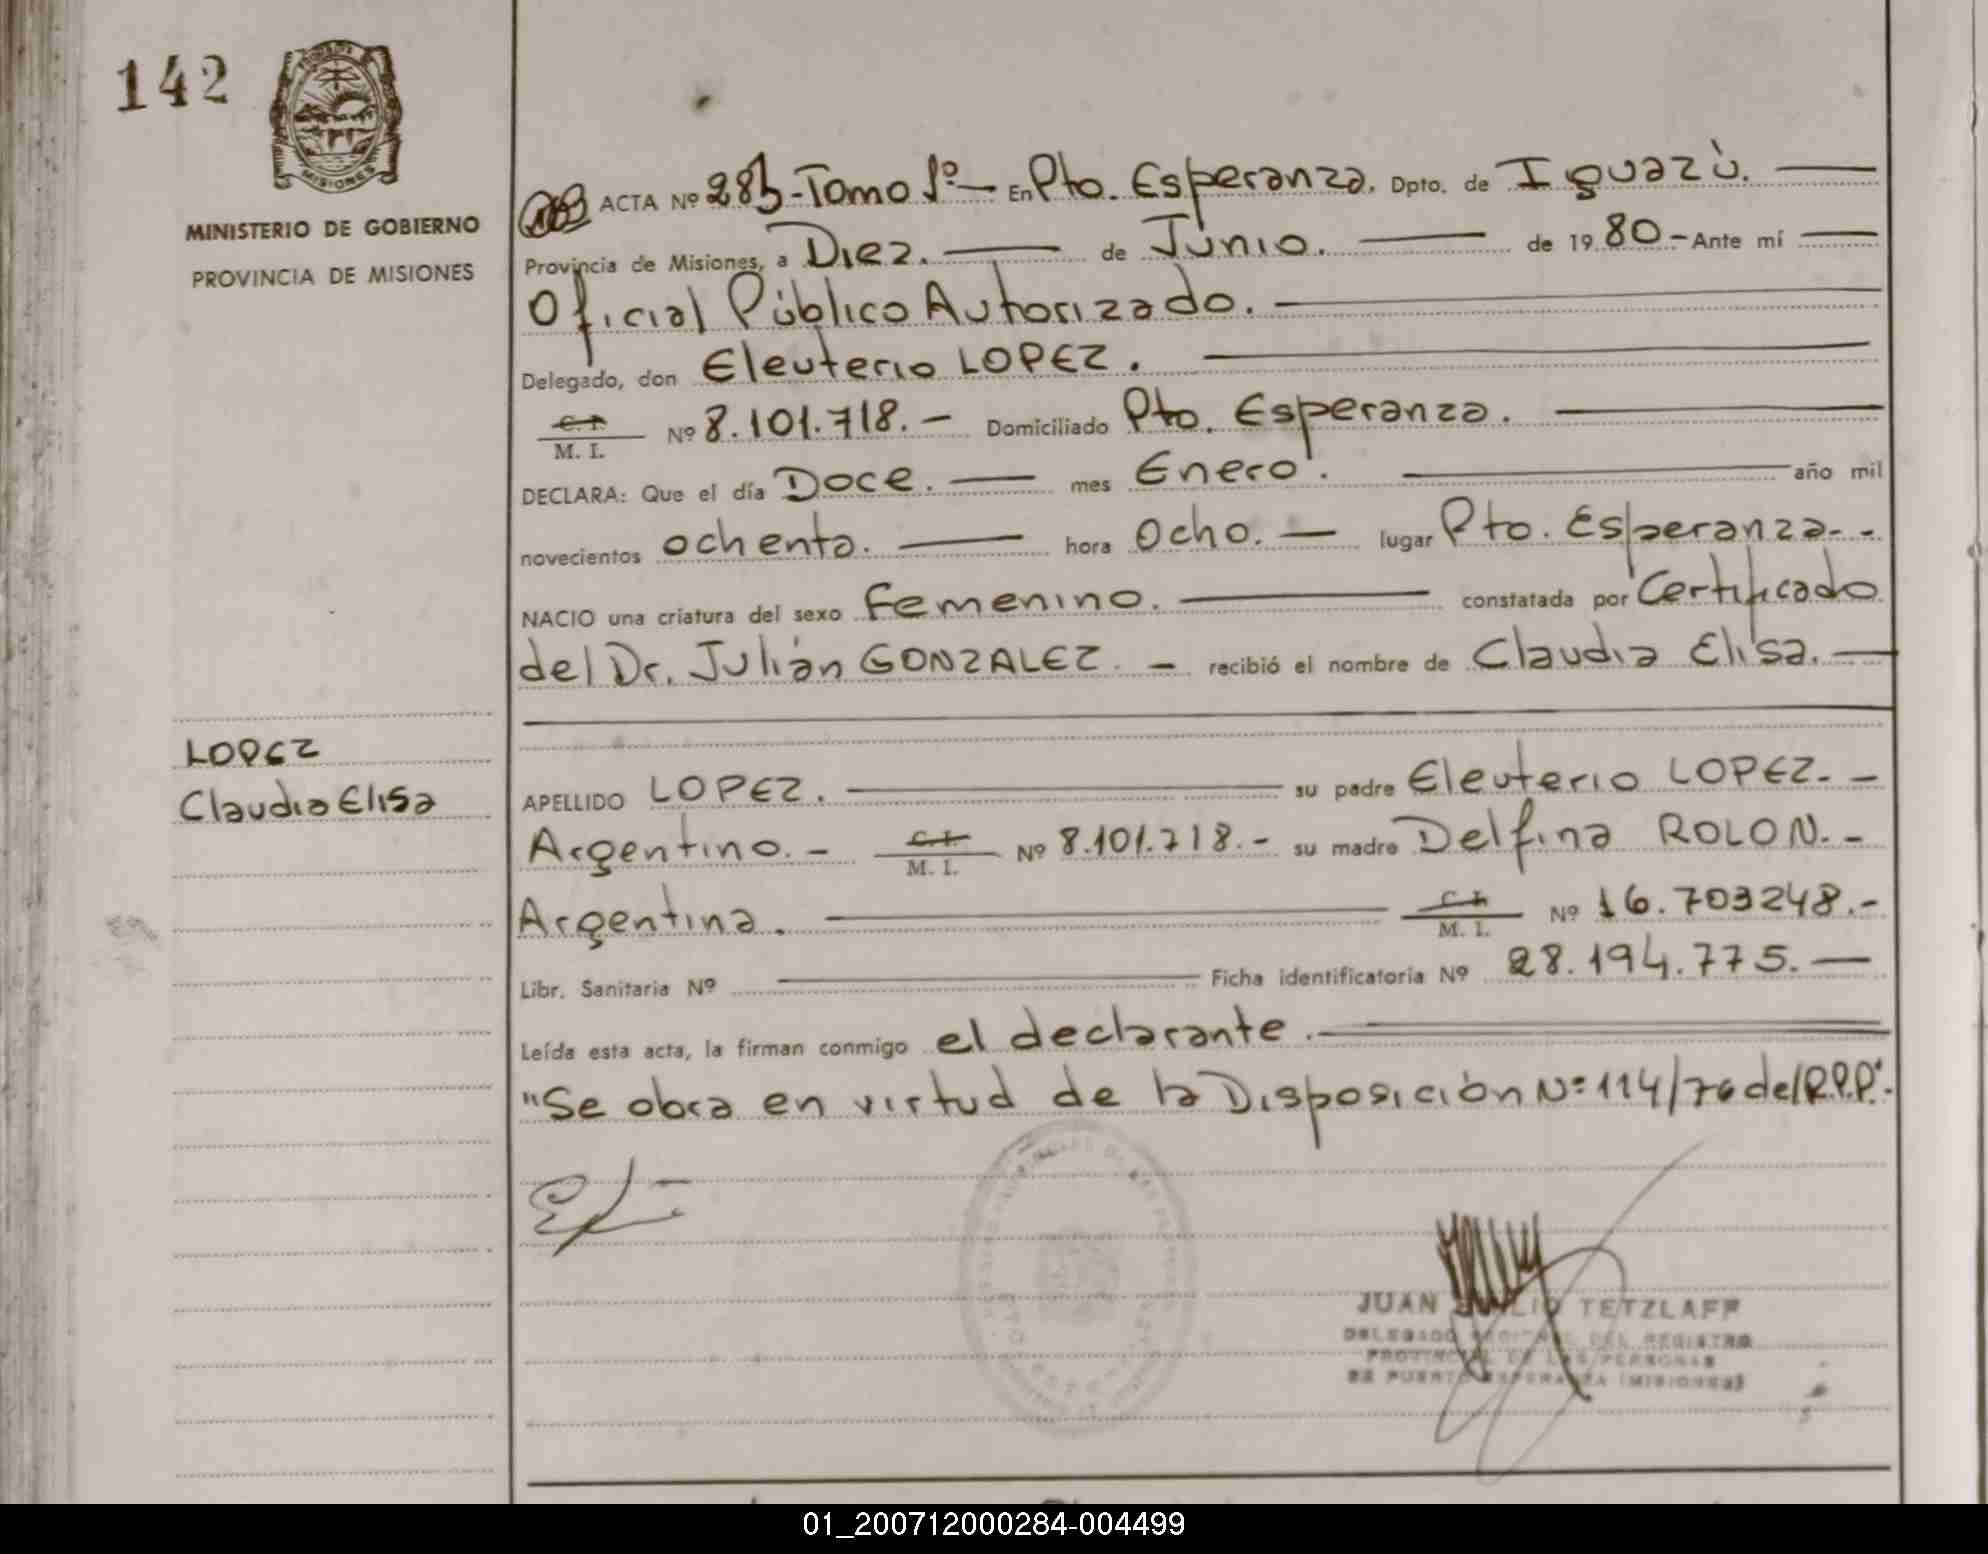 142
MISIONES
MINISTERIO DE GOBIERNO
PROVINCIA DE MISIONES
ACTA Nº 285-Tomo 1º- En Pto. Esperanza. Dpto. de Iguazù.
Provincia de Misiones, a Diez. de Junio. de 19 80- Ante mí
Oficial Público Autorizado.
Delegado, don Eleuterio LOPEZ.
C. I.
M. I. Nº 8.101.718.- Domiciliado Pto. Esperanza.
DECLARA: Que el día Doce. mes Enero. año mil
novecientos ochenta. hora Ocho. lugar Pto. Esperanza--
NACIO una criatura del sexo femenino. constatada por Certificado
del Dr. Julián GONZALEZ. - recibió el nombre de Claudia Elisa.
LOPEZ
Claudia Elisa
APELLIDO LOPEZ. su padre Eleuterio LOPEZ.-
Argentino.- C. I.
M. I. Nº 8.101.718.- su madre Delfina ROLON.-
Argentina. C. I.
M. I. Nº 16.703248.-
Libr. Sanitaria Nº Ficha identificatoria Nº 28.194.775.
Leída esta acta, la firman conmigo el declarante.
"Se obra en virtud de la Disposición Nº 114/76 del R.P.P".
JUAN TETZLAFF
DELEGADO DEL REGISTRO
PROVINCIAL DE LAS PERSONAS
DE PUERTO ESPERANZA (MISIONES)
01_200712000284-004499